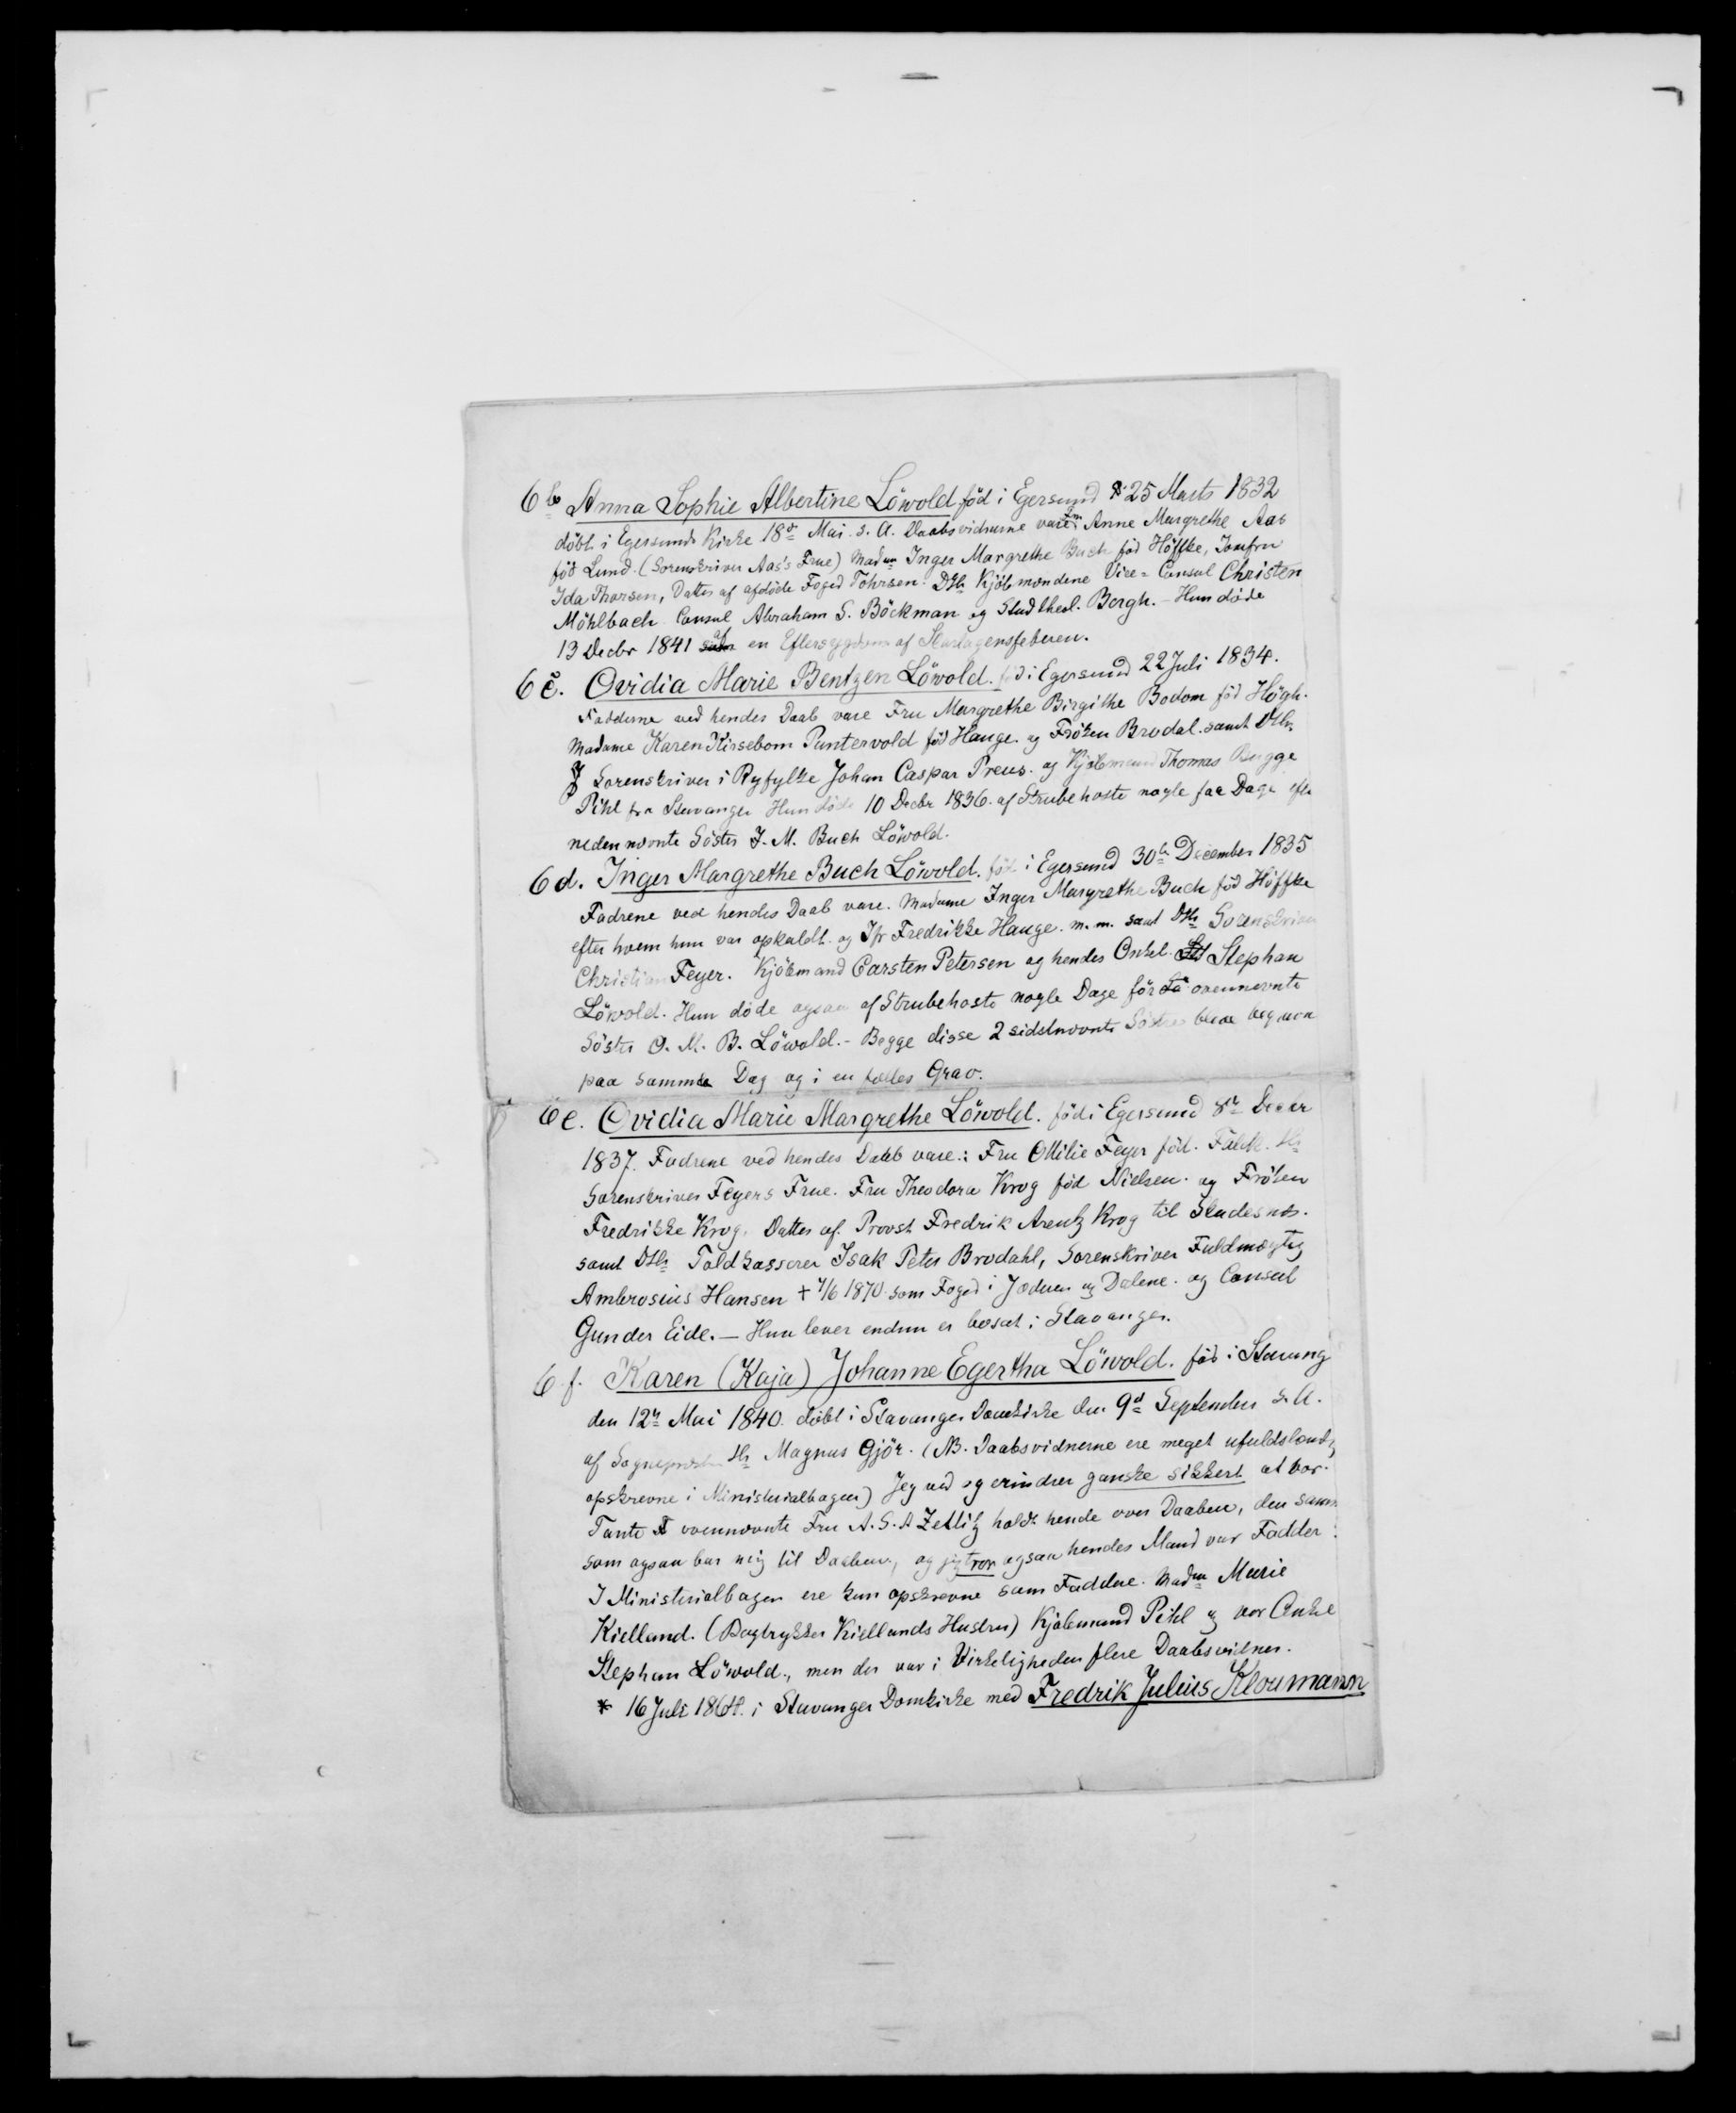 6b Anna Sophie Albertine Löwold född i Egersund d. 25 Marts 1832
döbt i Egersunds Kirke 18de Mai s. A. Daabsvidnerne vare Fru Anne Margrethe Aas
föd Lund. (Sorenskriver Aas's Frue) Madme Inger Margrethe Buch föd Höffke, Jomfru
Ida Thorsen, Datter af afdöde Foged Tohrsen. DHr Kjöbmændene Vice-Consul Christen
Möhlbach Consul Abraham S. Böckman og Stud theol. Borgh. - Hun döde
13 Decbr 1841 af en Eftersygdom af Skarlagensfeberen.
6c. Ovidia Marie Bentzen Löwold. föd i Egersund 22 Juli 1834.
Fadderne ved hendes Daab vare Fru Margrethe Birgithe Bodom föd Högh.
Madame Karen Kirsebom Puntervold föd Hauge. og Fröken Brodal. samt DHr
Sorenskriver i Ryfylke Johan Caspar Preus. og Kjöbmand Thomas Bugge
Pihl fra Stavanger Hun döde 10 Decbr 1836. af Strubehoste nogle faa Dage efter
nedennævnte Söster I. M. Buch Löwold.
6d. Inger Margrethe Buch Löwold. föd i Egersund 30te December 1835
Fadrene ved hendes Daab vare. Madame Inger Margrethe Buch föd Höffke
efter hvem hun var opkaldt. og Jfr Fredrikke Hauge. m. m. samt DHr Sorenskriver
Christian Feyer. Kjöbmand Carsten Petersen og hendes Onkel. Stephan
Löwold. Hun döde ogsaa af Strubehoste nogle Dage för ovennævnte
Söster O. M. B. Löwold. - Begge disse 2 sidstnævnte Söstre bleve begravne
paa samme Dag og i en fælles Grav.
6e. Ovidia Marie Margrethe Löwold. föd i Egersund 8de Decbr
1837. Fadrene ved hendes Daab vare.: Fru Ottilie Feyer föd. Falck. Hr
Sorenskriver Feyers Frue. Fru Theodora Krog föd Nielsen. og Fröken
Fredrikke Krog. Datter af. Provst Fredrik Arentz Krog til Skudesnæs.
samt DHr Toldkasserer Isak Peter Brodahl, Sorenskriver Fuldmægtig
Ambrosius Hansen + 7/6 1870. som Foged i Jæderen og Dalene. og Consul
Gunder Eide. - Hun lever endnu er bosat i Stavanger.
6f. Karen (Kaja) Johanne Egertha Löwold. föd i Stavang
den 12te Mai 1840. döbt i Stavanger Domkirke den 9de September s. A.
af Sognepræsten Hr Magnus Gjör. (NB. Daabsvidnerne ere meget ufuldstændig
opskrevne i Ministerialbogen) Jeg ved og erindrer ganske sikkert at vor
Tante ovennævnte Fru A. S. A Zetlitz holdt hende over Daaben, den samme
som ogsaa bar mig til Daaben, og jeg tror ogsaa hendes Mand var Fadder.
I Ministerialbogen ere kun opskrevne som Faddere. Madme Marie
Kielland. (Bogtrykker Kiellands Hustru) Kjöbmand Pihl og vor Onkel
Stephan Löwold., men der var i Virkeligheden flere Daabsvidner.
* 16 Juli 1864. i Stavanger Domkirke med Fredrik Julius Kloumann